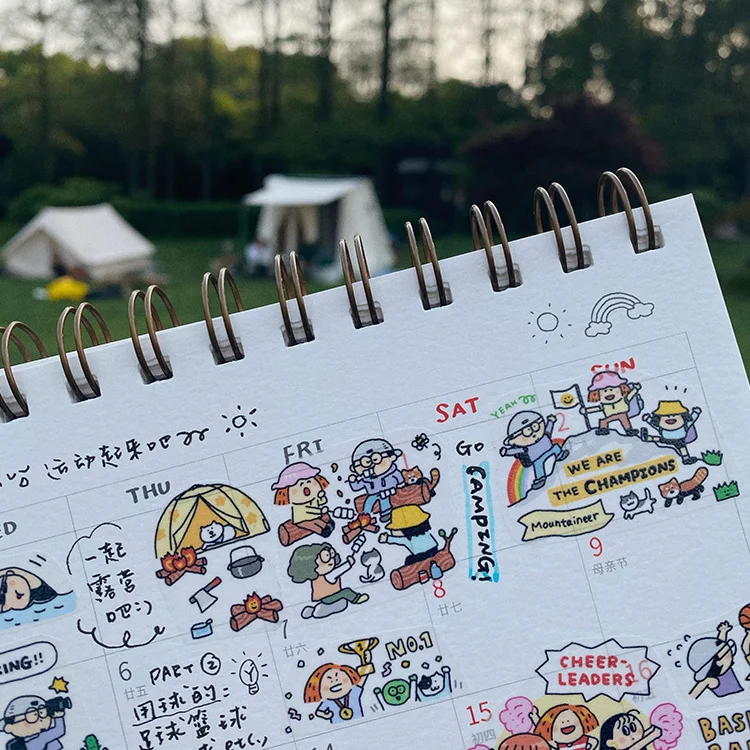 运动起来吧
SAT
SUN
FRI
THU
YEAH
2
GO
CAMPING!
WE ARE
THE CHAMPIONS
Mountaineer
一起
露营
吧:)
8
廿七
9
母亲节
7
廿六
NO.1
6
廿五
PART ②
用球的:
足球 篮球
CHEER-
LEADERS
15
初三
16
初四